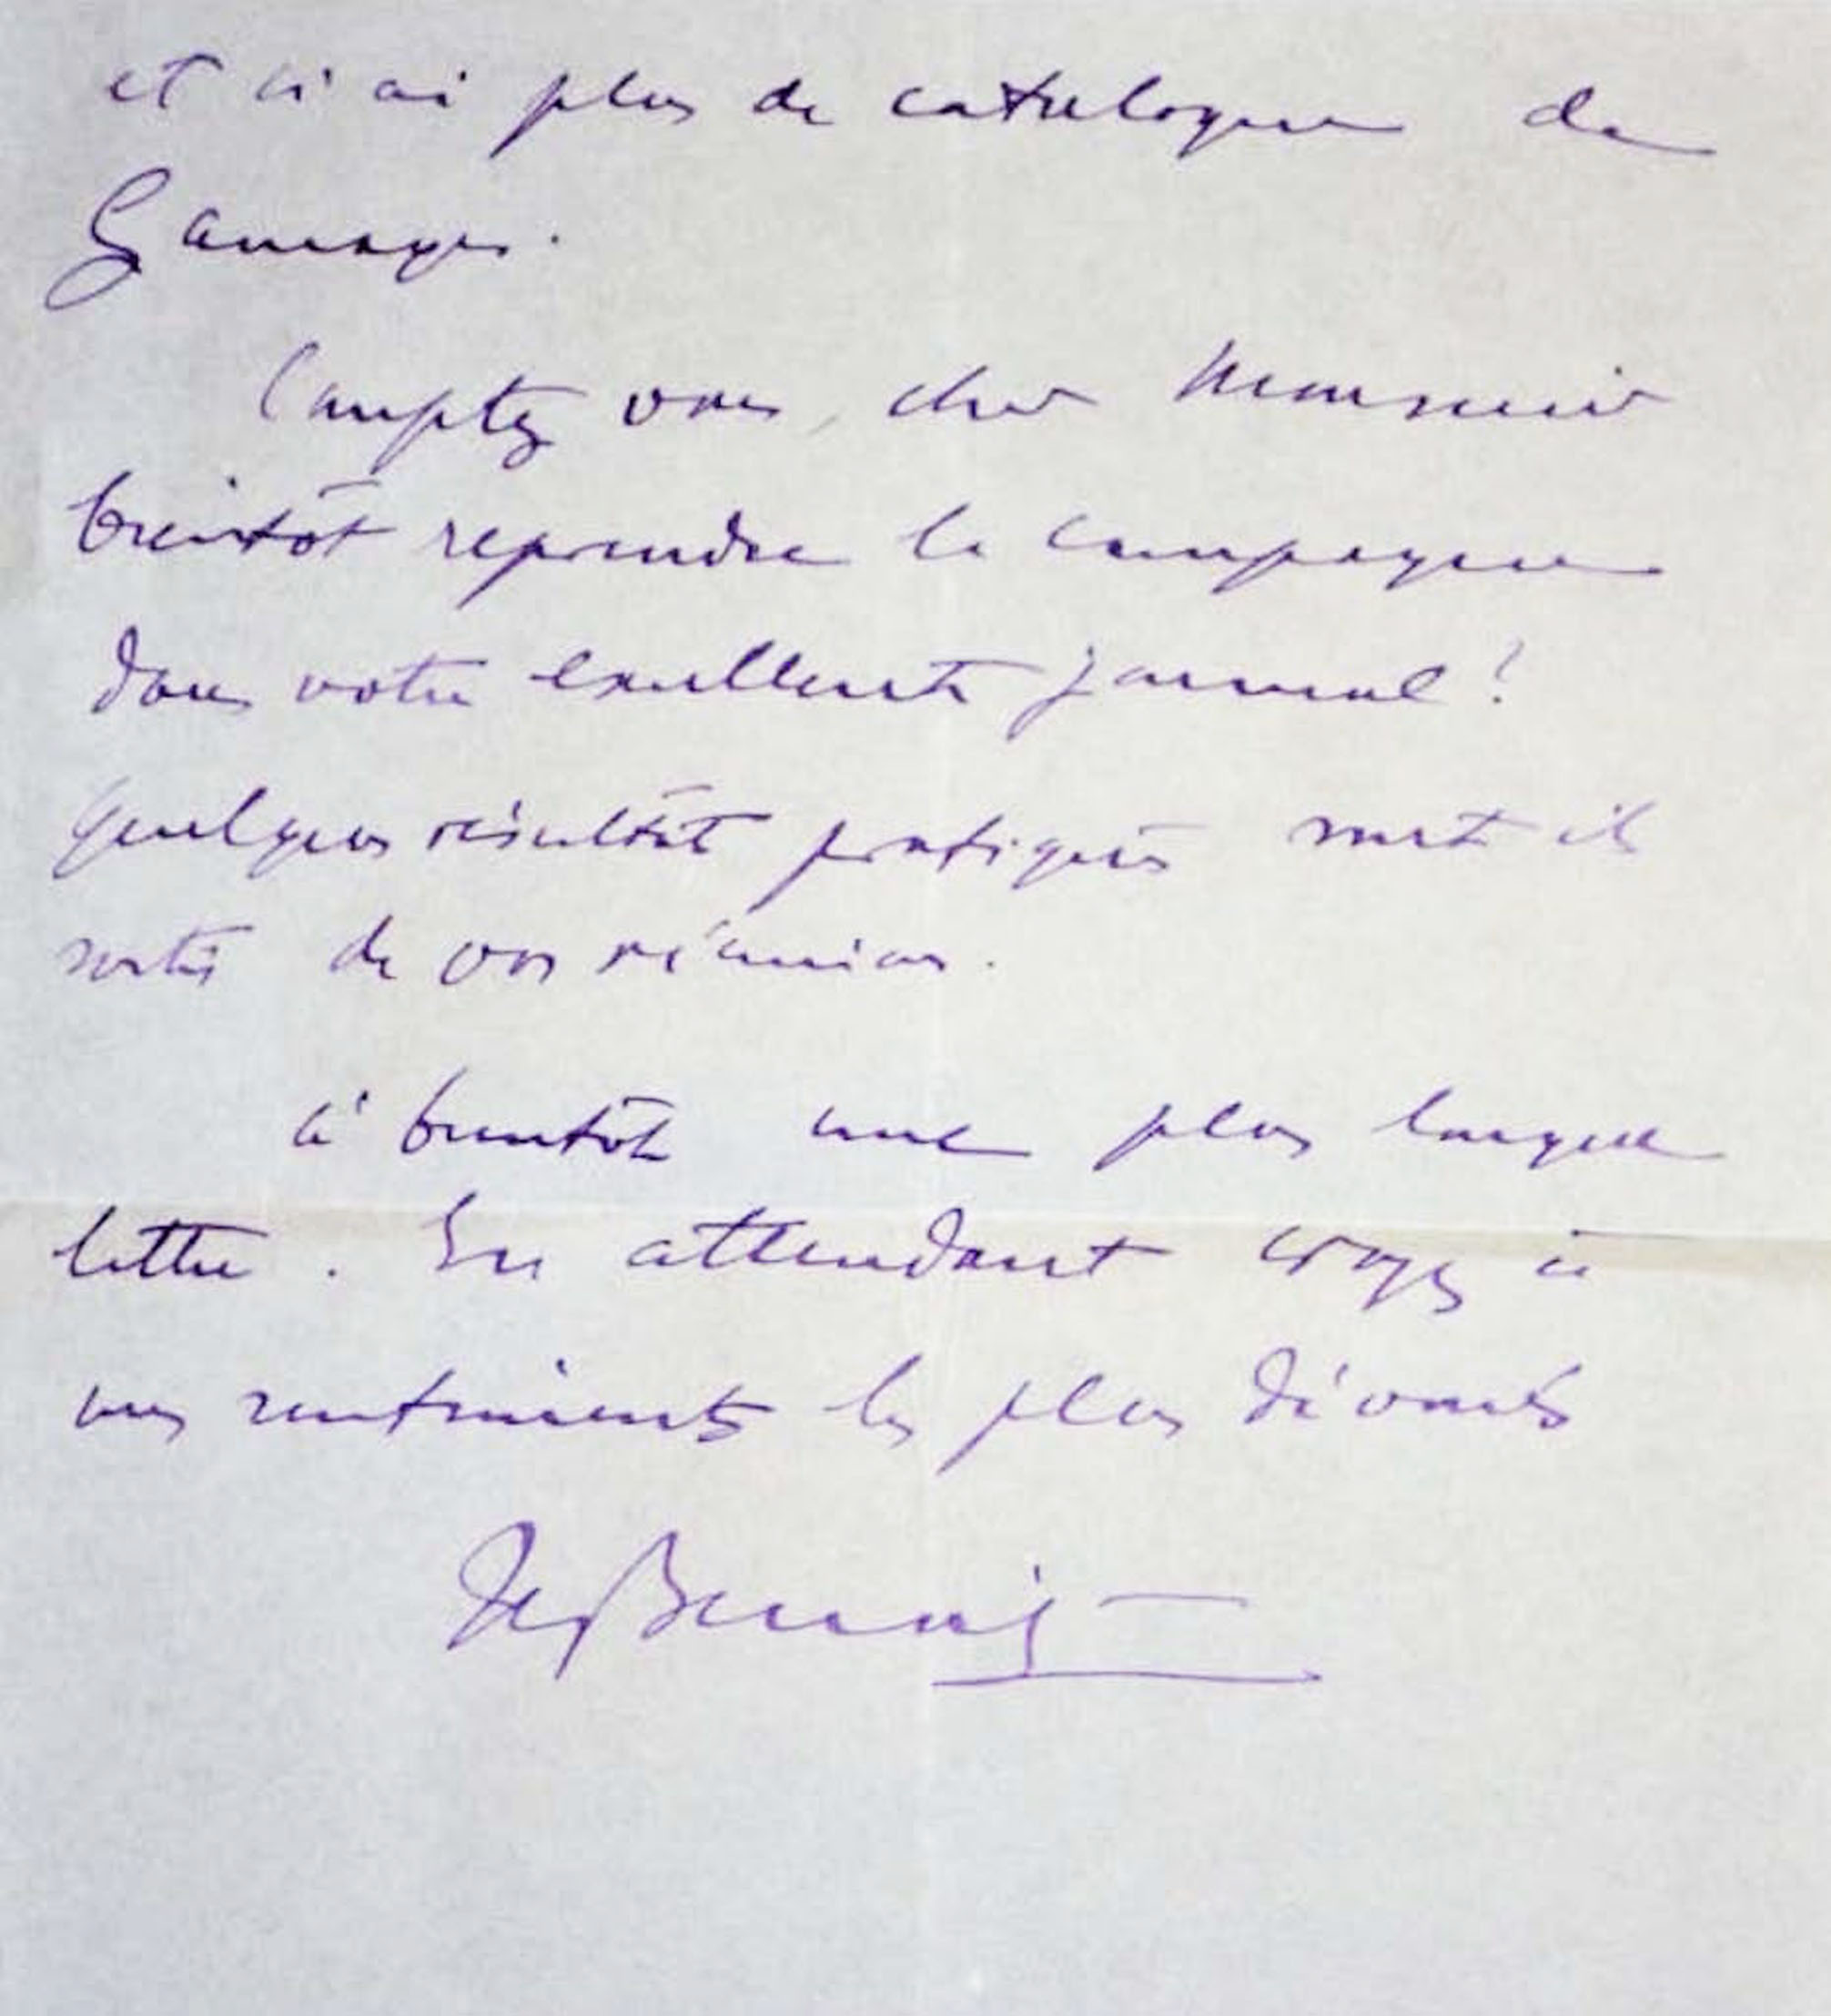 et n'ai plus de catalogue de
Gamages.
Comptez vous, cher Monsieur
bientôt reprendre la campagne
dans votre excellente journal ?
quelques résultat pratiques sont ils
sortis de vos réunions.
à bientôt une plus longue
lettre. En attendant croyez à
mes sentiments les plus dévoués